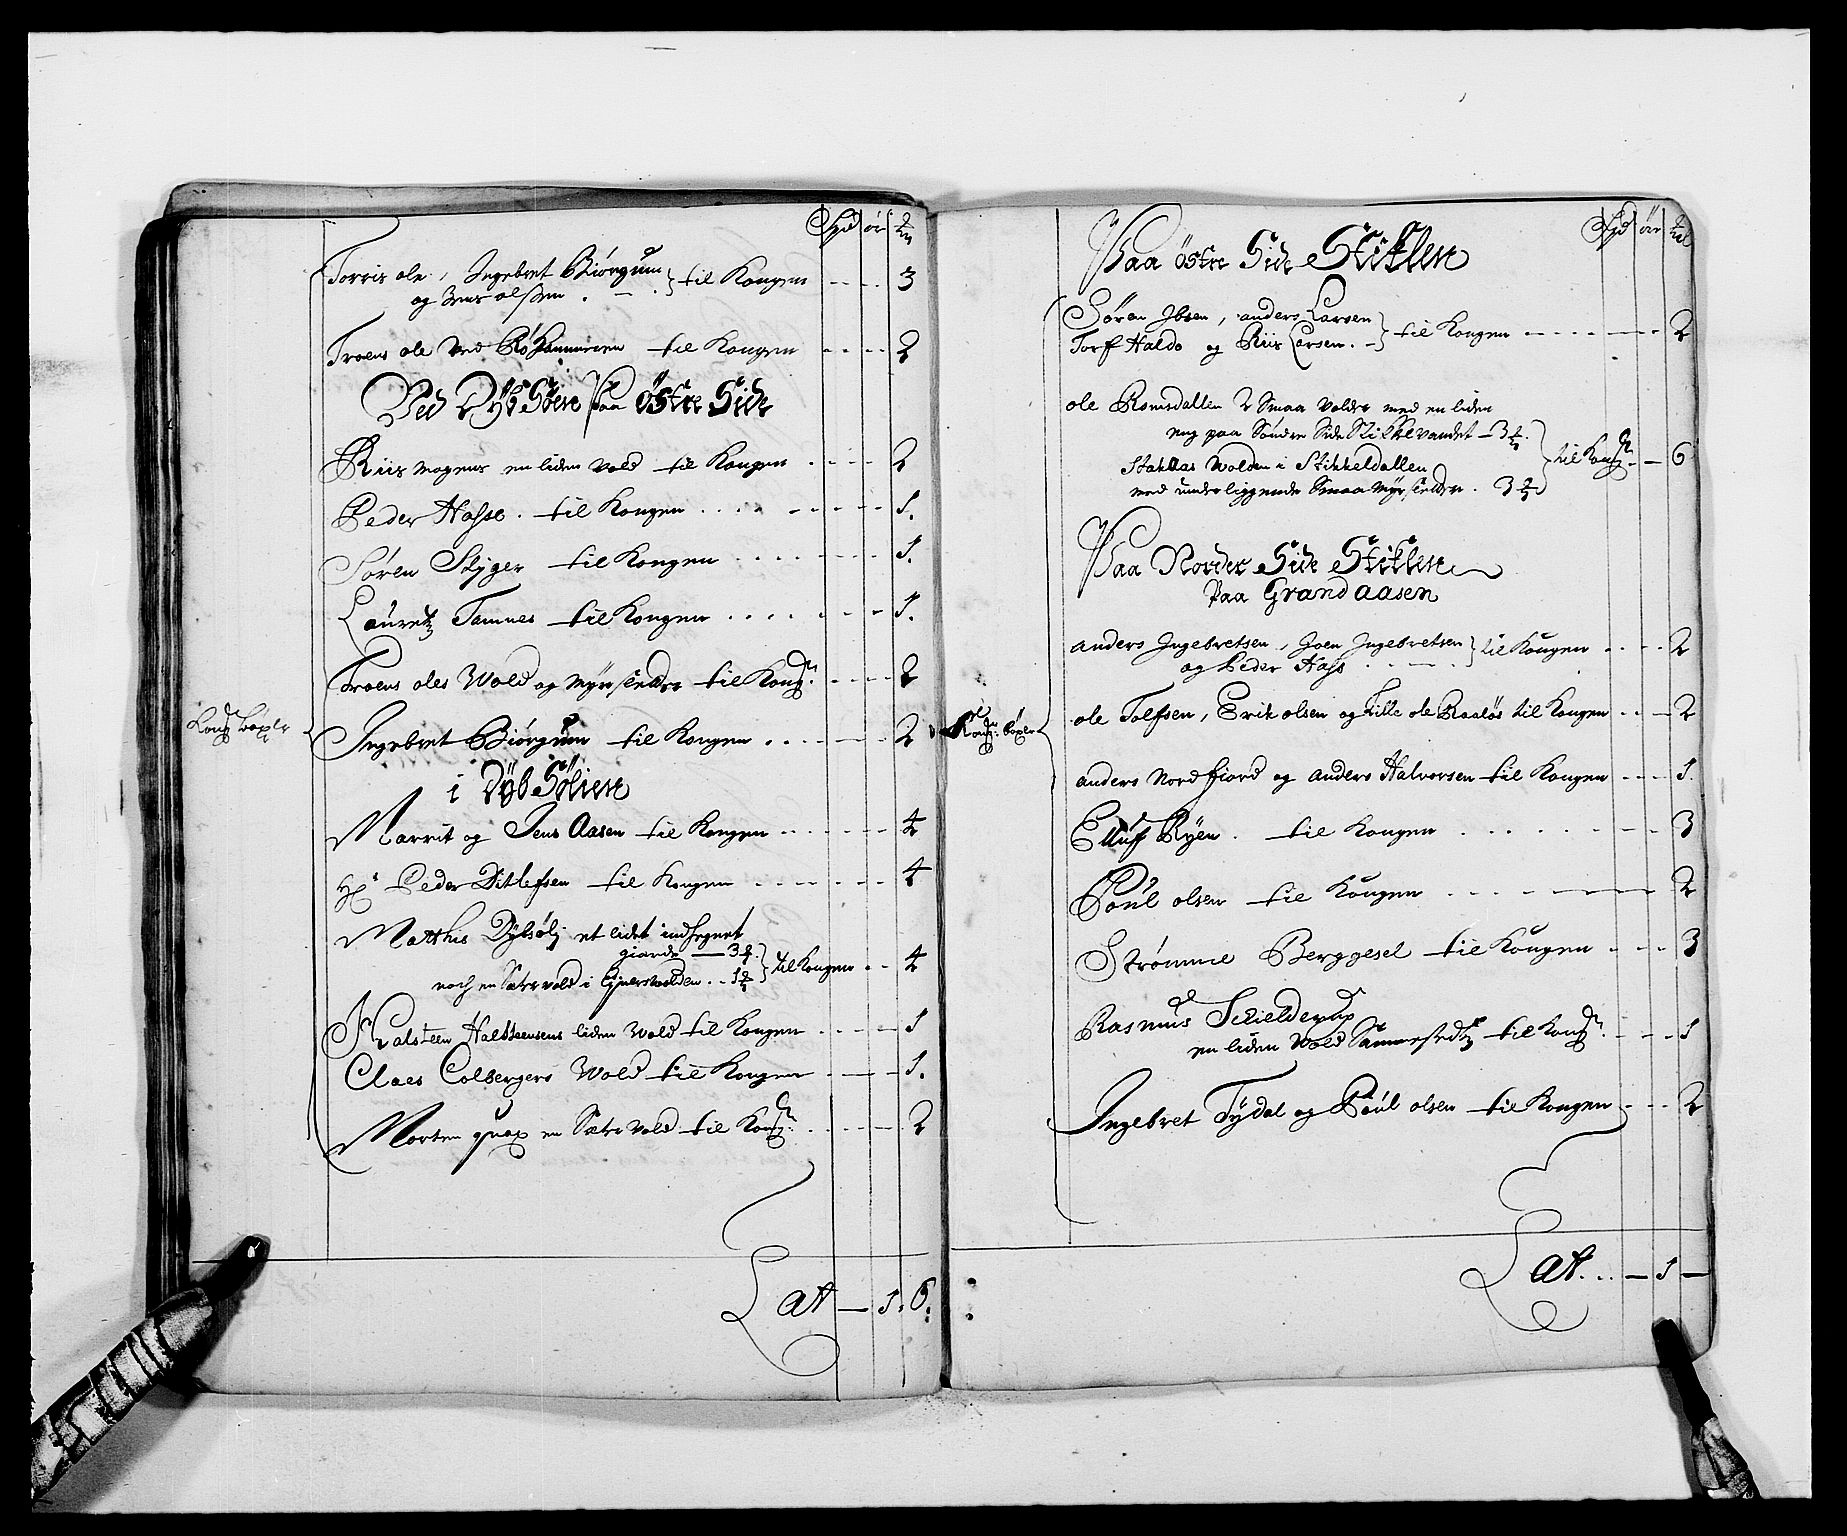 Spd ör
Torris ole, Ingebret Biörgum
og Jens olssen . — . } til Kongen - - - - 3
Troens ole Ved til Kongen - - - - 2
Ved Dÿb Söen Paa östre Side
Riis Mogens en liden Vold til Kongen . - - - 2
Peder Hasse . til Kongen . . . . - - - - - 1.
Sören Styger til Kongen . . . . - - - - 1.
Lauretz Tamnes til Kongen . . . . - - - 1.
Troens oles Wold og til Kong: . - - - - 2
Kong: böxler
Ingebret Biörgum til Kongen . . - - - - 2
i Dÿb Söliene
Marrit og Jens Aasen til Kongen - - - - - - 4
Hr Peder Ditlefsen til Kongen - - - - - - 4
Matthis Dÿbsölj et lidet indhegnet
giærde — 3
noch en Sæter vold i - - 1 } til Kongen - - 4
Halsteen Halsteensens liden Wold til Kongen - - - - - 1
Claes Colbergers Wold til Kongen - - - - - 1.
Morten quax en Sæter Vold til Kong: . - - - - 2
Lat — 1. 6.
Spd ör
Paa östre Side Stiklen
Sören Ibsen, anders Larsen
Torf Haldo og Riis Larsen . - } til Kongen - - - - - - 2
ole Romsdallen 2 Smaa Volder med en liden
eng paa Söndre Side Stikkelvandet - 3
Wolden i Stikkeldallen
med underliggende Smaa . 3
} til Kong: - - 6
Paa Norder Side Stiklen
Paa Grandaasen
anders Ingebretsen, Joen Ingebretsen
og Peder Hass . - - - . } til Kongen - - - - 2
Kong: böxler
ole Tolfsen, Erik olsen og Lille ole Raalös til Kongen - - - 2
anders Nordfiord og anders Halvorsen til Kongen - - - - 1.
Elluf Rÿen . til Kongen . . . . . - - - 3
Poul olsen til Kongen . . . . - - - - 2
Strömme Berggesel til Kongen . - - - 3
Rasmus Schielderup
en liden Wold Sammestedtz til Kong: - - - - 1
Ingebret Tÿdal og Poul olsen til Kongen - - - 2
Lat . . . — 1 —